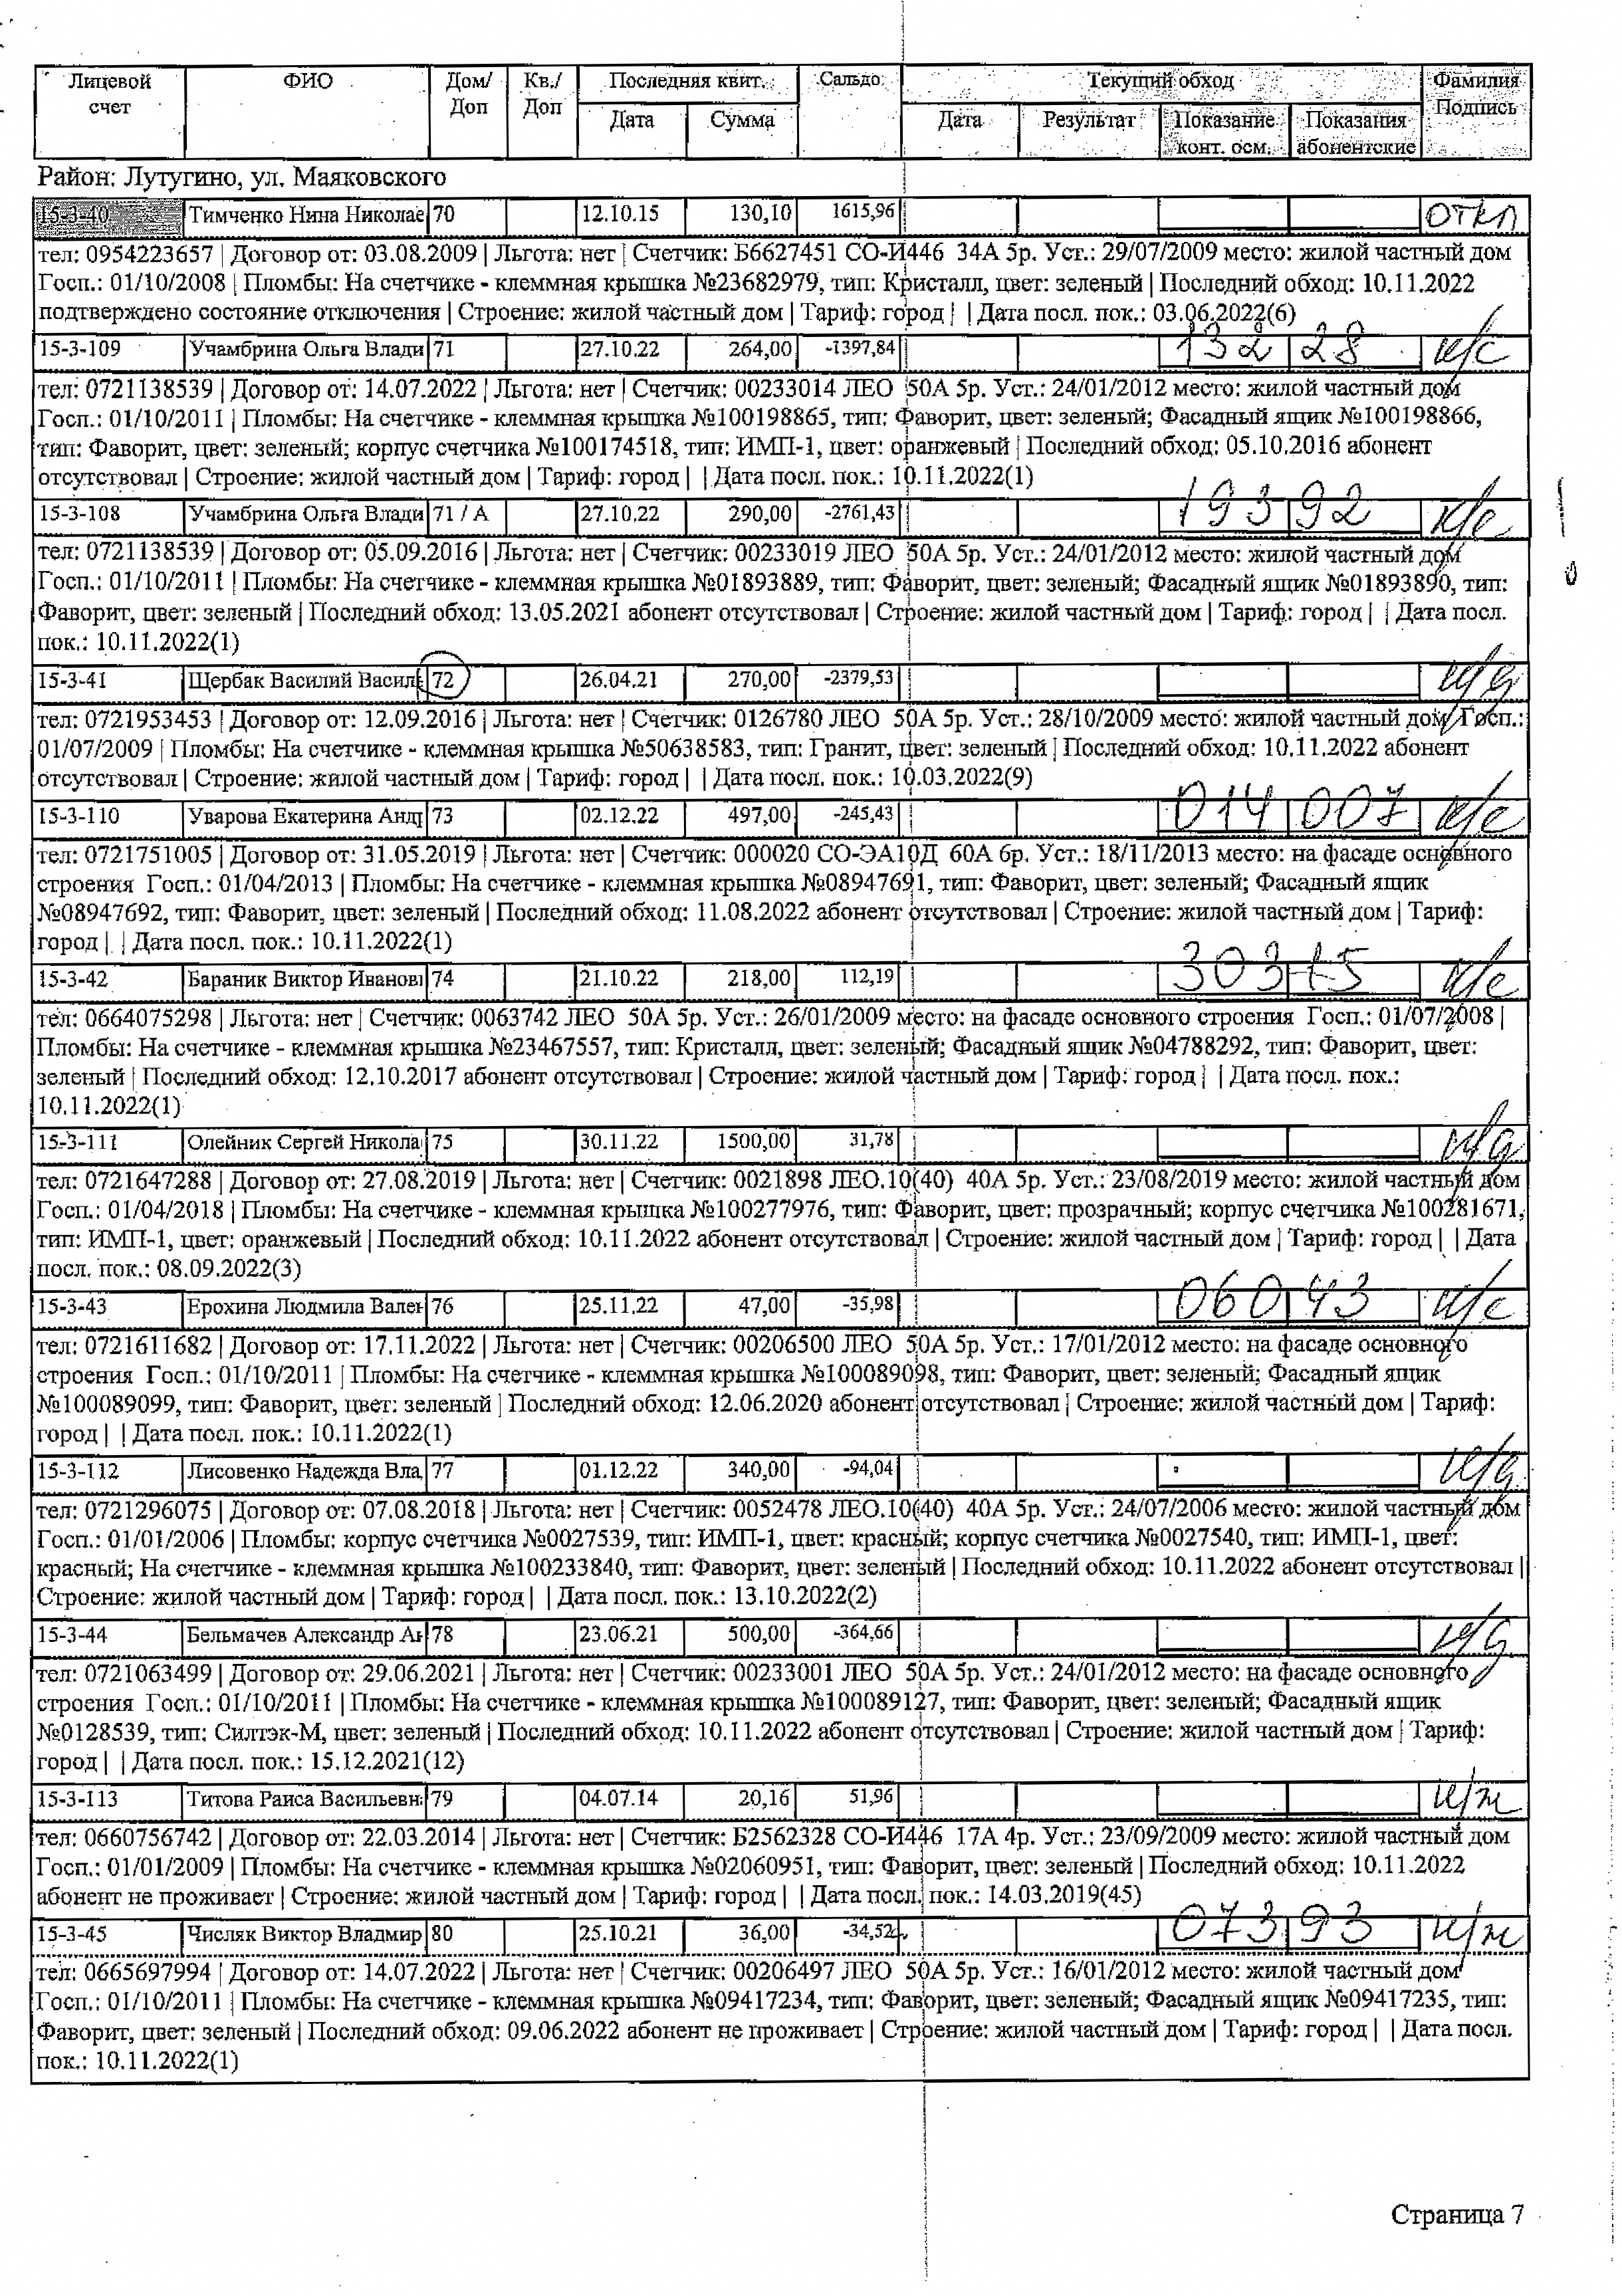 Лицевой счет | ФИО | Дом/ Доп | Кв./ Доп | Последняя квит. | Сальдо | Текущий обход | Фамилия Подпись
Дата | Сумма | Дата | Результат | Показание конт. осм. | Показания абонентские
Район: Лутугино, ул. Маяковского
15-3-40 Тимченко Нина Николае 70 12.10.15 130,10 1615,96 откл
тел: 0954223657 | Договор от: 03.08.2009 | Льгота: нет | Счетчик: Б6627451 СО-И446 34А 5р. Уст.: 29/07/2009 место: жилой частный дом
Госп.: 01/10/2008 | Пломбы: На счетчике - клеммная крышка №23682979, тип: Кристалл, цвет: зеленый | Последний обход: 10.11.2022
подтверждено состояние отключения | Строение: жилой частный дом | Тариф: город | | Дата посл. пок.: 03.06.2022(6)
15-3-109 Учамбрина Ольга Влади 71 27.10.22 264,00 -1397,84 132 28 к/с
тел: 0721138539 | Договор от: 14.07.2022 | Льгота: нет | Счетчик: 00233014 ЛЕО 50А 5р. Уст.: 24/01/2012 место: жилой частный дом
Госп.: 01/10/2011 | Пломбы: На счетчике - клеммная крышка №100198865, тип: Фаворит, цвет: зеленый; Фасадный ящик №100198866,
тип: Фаворит, цвет: зеленый; корпус счетчика №100174518, тип: ИМП-1, цвет: оранжевый | Последний обход: 05.10.2016 абонент
отсутствовал | Строение: жилой частный дом | Тариф: город | | Дата посл. пок.: 10.11.2022(1)
15-3-108 Учамбрина Ольга Влади 71 / А 27.10.22 290,00 -2761,43 193 92 к/с
тел: 0721138539 | Договор от: 05.09.2016 | Льгота: нет | Счетчик: 00233019 ЛЕО 50А 5р. Уст.: 24/01/2012 место: жилой частный дом
Госп.: 01/10/2011 | Пломбы: На счетчике - клеммная крышка №01893889, тип: Фаворит, цвет: зеленый; Фасадный ящик №01893890, тип:
Фаворит, цвет: зеленый | Последний обход: 13.05.2021 абонент отсутствовал | Строение: жилой частный дом | Тариф: город | | Дата посл.
пок.: 10.11.2022(1)
15-3-41 Щербак Василий Васил 72 26.04.21 270,00 -2379,53 н/д
тел: 0721953453 | Договор от: 12.09.2016 | Льгота: нет | Счетчик: 0126780 ЛЕО 50А 5р. Уст.: 28/10/2009 место: жилой частный дом Госп.:
01/07/2009 | Пломбы: На счетчике - клеммная крышка №50638583, тип: Гранит, цвет: зеленый | Последний обход: 10.11.2022 абонент
отсутствовал | Строение: жилой частный дом | Тариф: город | | Дата посл. пок.: 10.03.2022(9)
15-3-110 Уварова Екатерина Анд 73 02.12.22 497,00 -245,43 014 007 к/с
тел: 0721751005 | Договор от: 31.05.2019 | Льгота: нет | Счетчик: 000020 СО-ЭА10Д 60А 6р. Уст.: 18/11/2013 место: на фасаде основного
строения Госп.: 01/04/2013 | Пломбы: На счетчике - клеммная крышка №08947691, тип: Фаворит, цвет: зеленый; Фасадный ящик
№08947692, тип: Фаворит, цвет: зеленый | Последний обход: 11.08.2022 абонент отсутствовал | Строение: жилой частный дом | Тариф:
город | | Дата посл. пок.: 10.11.2022(1)
15-3-42 Бараник Виктор Иванови 74 21.10.22 218,00 112,19 303 15 к/с
тел: 0664075298 | Льгота: нет | Счетчик: 0063742 ЛЕО 50А 5р. Уст.: 26/01/2009 место: на фасаде основного строения Госп.: 01/07/2008 |
Пломбы: На счетчике - клеммная крышка №23467557, тип: Кристалл, цвет: зеленый; Фасадный ящик №04788292, тип: Фаворит, цвет:
зеленый | Последний обход: 12.10.2017 абонент отсутствовал | Строение: жилой частный дом | Тариф: город | | Дата посл. пок.:
10.11.2022(1)
15-3-111 Олейник Сергей Никола 75 30.11.22 1500,00 31,78 н/д
тел: 0721647288 | Договор от: 27.08.2019 | Льгота: нет | Счетчик: 0021898 ЛЕО.10(40) 40А 5р. Уст.: 23/08/2019 место: жилой частный дом
Госп.: 01/04/2018 | Пломбы: На счетчике - клеммная крышка №100277976, тип: Фаворит, цвет: прозрачный; корпус счетчика №100281671,
тип: ИМП-1, цвет: оранжевый | Последний обход: 10.11.2022 абонент отсутствовал | Строение: жилой частный дом | Тариф: город | | Дата
посл. пок.: 08.09.2022(3)
15-3-43 Ерохина Людмила Вален 76 25.11.22 47,00 -35,98 060 43 к/с
тел: 0721611682 | Договор от: 17.11.2022 | Льгота: нет | Счетчик: 00206500 ЛЕО 50А 5р. Уст.: 17/01/2012 место: на фасаде основного
строения Госп.: 01/10/2011 | Пломбы: На счетчике - клеммная крышка №100089098, тип: Фаворит, цвет: зеленый; Фасадный ящик
№100089099, тип: Фаворит, цвет: зеленый | Последний обход: 12.06.2020 абонент отсутствовал | Строение: жилой частный дом | Тариф:
город | | Дата посл. пок.: 10.11.2022(1)
15-3-112 Лисовенко Надежда Вла 77 01.12.22 340,00 -94,04 н/д
тел: 0721296075 | Договор от: 07.08.2018 | Льгота: нет | Счетчик: 0052478 ЛЕО.10(40) 40А 5р. Уст.: 24/07/2006 место: жилой частный дом
Госп.: 01/01/2006 | Пломбы: корпус счетчика №0027539, тип: ИМП-1, цвет: красный; корпус счетчика №0027540, тип: ИМП-1, цвет:
красный; На счетчике - клеммная крышка №100233840, тип: Фаворит, цвет: зеленый | Последний обход: 10.11.2022 абонент отсутствовал |
Строение: жилой частный дом | Тариф: город | | Дата посл. пок.: 13.10.2022(2)
15-3-44 Бельмачев Александр Ан 78 23.06.21 500,00 -364,66 н/д
тел: 0721063499 | Договор от: 29.06.2021 | Льгота: нет | Счетчик: 00233001 ЛЕО 50А 5р. Уст.: 24/01/2012 место: на фасаде основного
строения Госп.: 01/10/2011 | Пломбы: На счетчике - клеммная крышка №100089127, тип: Фаворит, цвет: зеленый; Фасадный ящик
№0128539, тип: Силтэк-М, цвет: зеленый | Последний обход: 10.11.2022 абонент отсутствовал | Строение: жилой частный дом | Тариф:
город | | Дата посл. пок.: 15.12.2021(12)
15-3-113 Титова Раиса Васильевн 79 04.07.14 20,16 51,96 н/ж
тел: 0660756742 | Договор от: 22.03.2014 | Льгота: нет | Счетчик: Б2562328 СО-И446 17А 4р. Уст.: 23/09/2009 место: жилой частный дом
Госп.: 01/01/2009 | Пломбы: На счетчике - клеммная крышка №02060951, тип: Фаворит, цвет: зеленый | Последний обход: 10.11.2022
абонент не проживает | Строение: жилой частный дом | Тариф: город | | Дата посл. пок.: 14.03.2019(45)
15-3-45 Числяк Виктор Владмир 80 25.10.21 36,00 -34,52 073 93 н/ж
тел: 0665697994 | Договор от: 14.07.2022 | Льгота: нет | Счетчик: 00206497 ЛЕО 50А 5р. Уст.: 16/01/2012 место: жилой частный дом
Госп.: 01/10/2011 | Пломбы: На счетчике - клеммная крышка №09417234, тип: Фаворит, цвет: зеленый; Фасадный ящик №09417235, тип:
Фаворит, цвет: зеленый | Последний обход: 09.06.2022 абонент не проживает | Строение: жилой частный дом | Тариф: город | | Дата посл.
пок.: 10.11.2022(1)
Страница 7